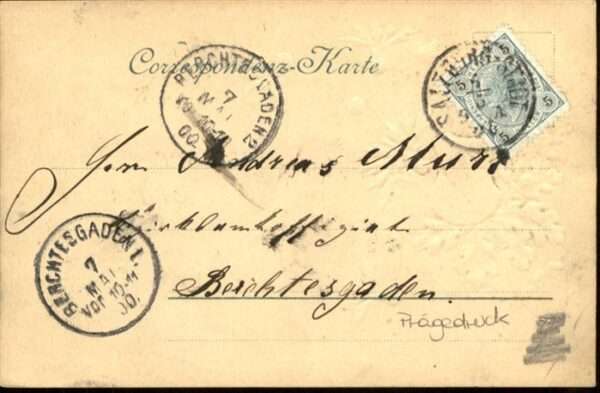 Correspondenz-Karte
BERCHTESGADEN 2
7
MAI
00.
SALZBURG-STADT
5
5
Herrn Andreas
Berchtesgaden.
BERCHTESGADEN I.
7
MAI
Vor 10-11
00.
Prägedruck